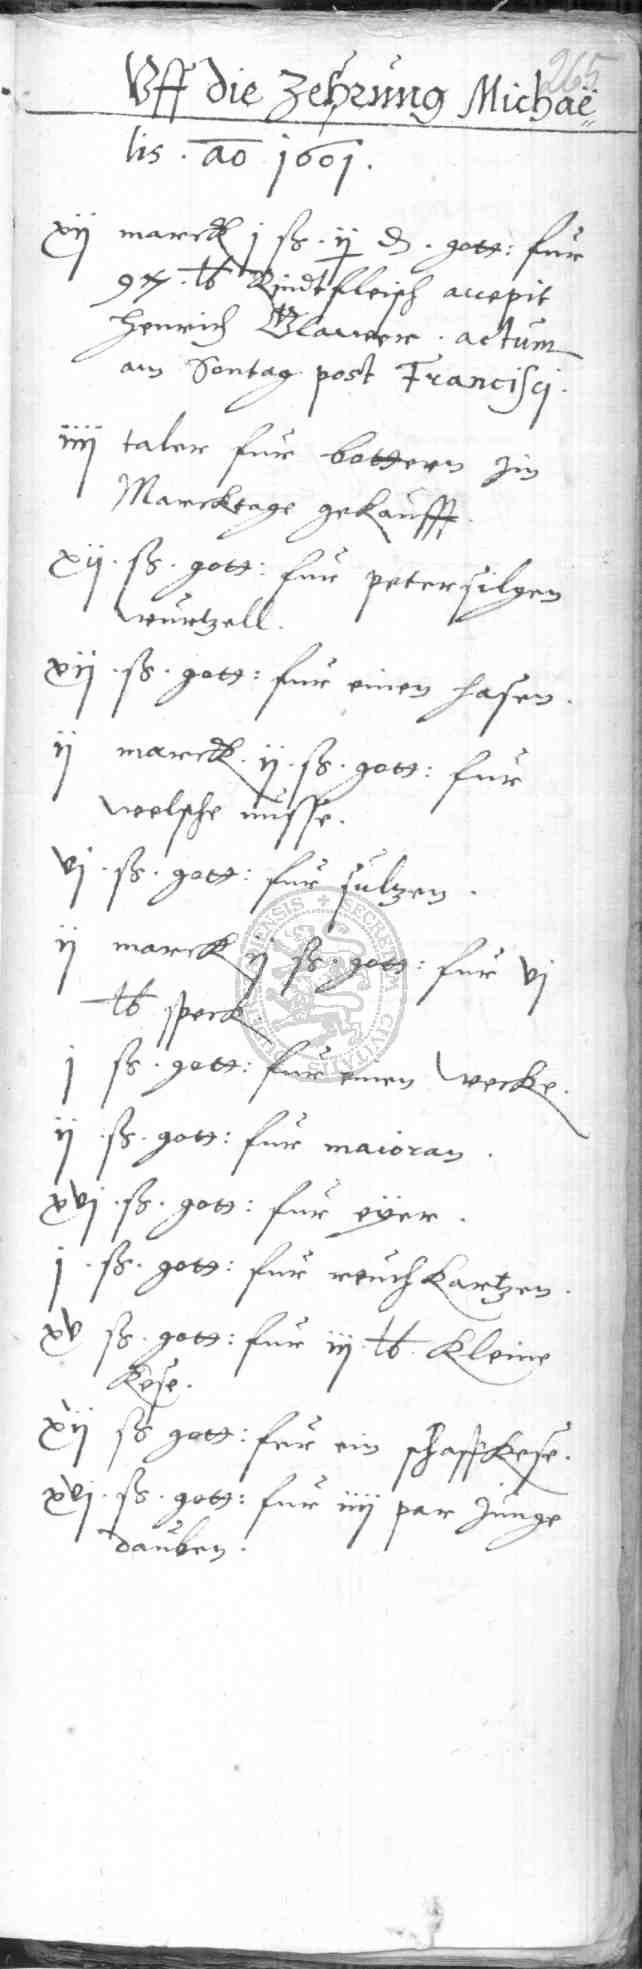 265
Vff die Zehrung Michaë
lis . ao 1601 .
xij marck j ß . ij d . gott: fur
97 . lb Rindtfleisch accepit
Henrich Blawer . actum
am Sontag post Francisci .
iiij taler fur bottern Jm
Marcktage gekaufft .
xij . ß . gott: fur petersilgen
wurtzell .
xij . ß . gott: fur einen hasen .
ij marck . ij . ß . gott: fur
welsche nusse .
vj . ß . gott: fur sultzen .
ij marck ij ß . gott: fur vj
lb speck
j ß . gott: fur einen wecke .
ij . ß . gott: fur maioran .
xvj . ß . gott: fur eÿer .
j . ß . gott: fur reuchkartzen .
xv ß . gott: fur iij . lb . kleine
kese .
xij ß gott: fur ein schaffkese .
xvj . ß . gott: fur iiij par junge
dauben .
SECRETVM CIVITATIS